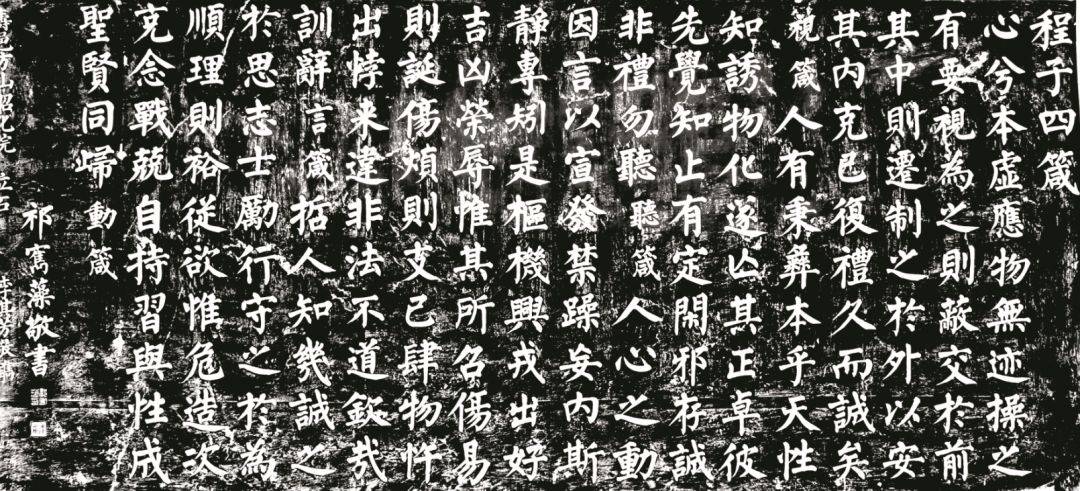 程子四箴
心兮本虛應物無迹操之
有要視為之則蔽交於前
其中則遷制之於外以安
其內克己復禮久而誠矣
視箴人有秉彝本乎天性
知誘物化遂亡其正卓彼
先覺知止有定閑邪存誠
非禮勿聽聽箴人心之動
因言以宣發禁躁妄內斯
靜專矧是樞機興戎出好
吉凶榮辱惟其所召傷易
則誕傷煩則支己肆物忤
出悖來違非法不道欽哉
訓辭言箴哲人知幾誠之
於思志士勵行守之於為
順理則裕從欲惟危造次
克念戰兢自持習與性成
聖賢同歸動箴
祁寯藻敬書